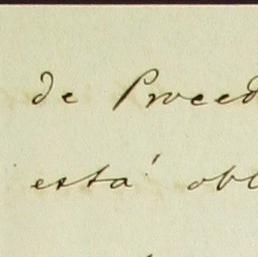 de Proced
está obl